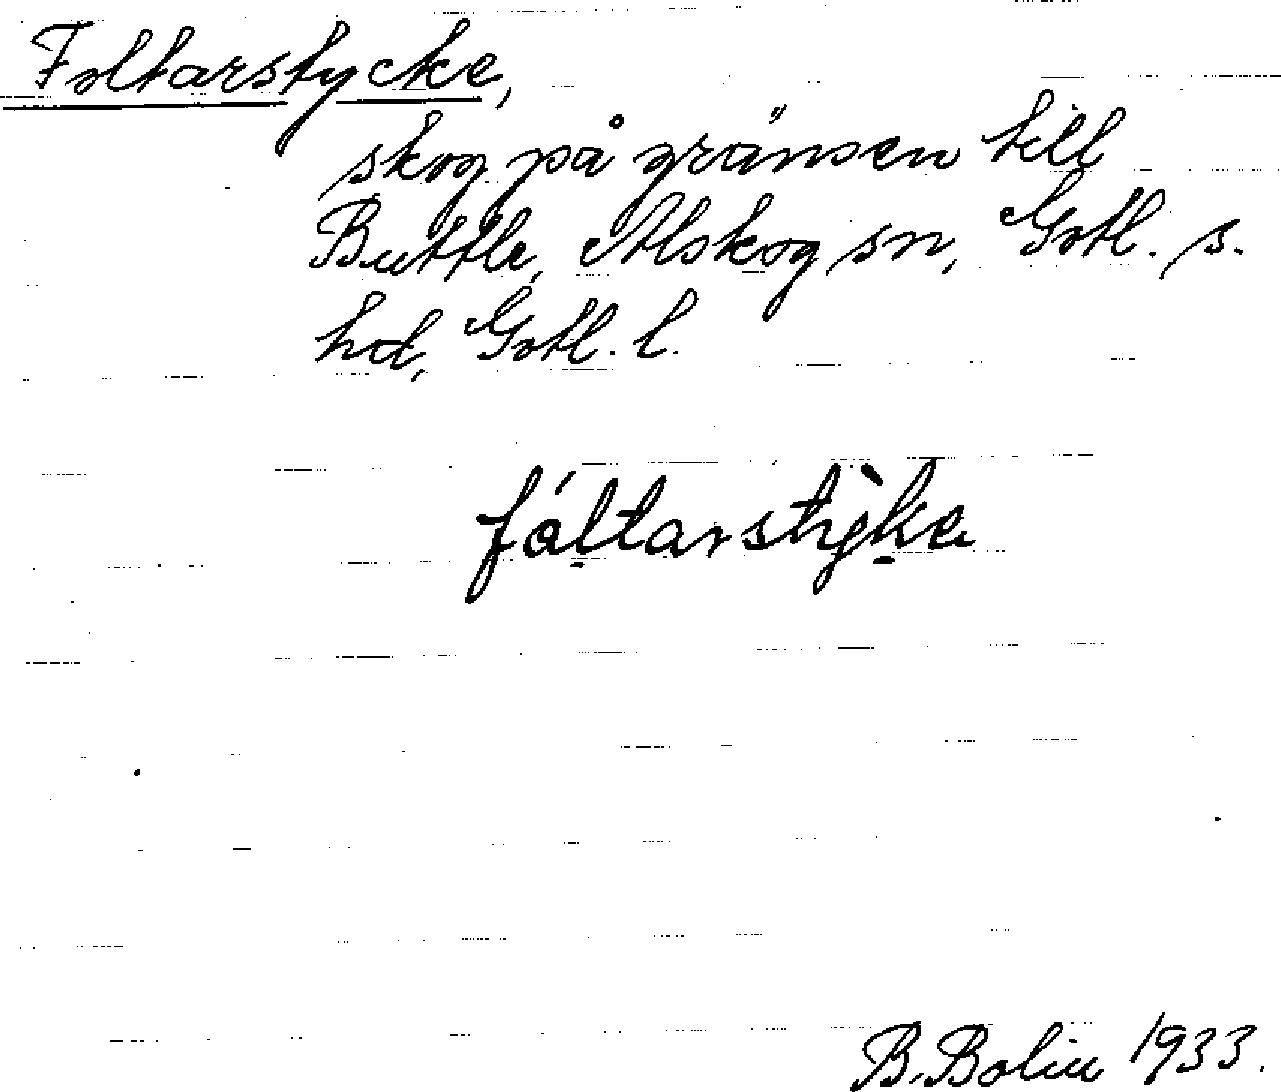 Foltarstycke,
skog på gränsen till
Buttle, Alskog sn, Gotl. s.
hd, Gotl. l.
fáḷtarstỳḳa
B. Bolin 1933.